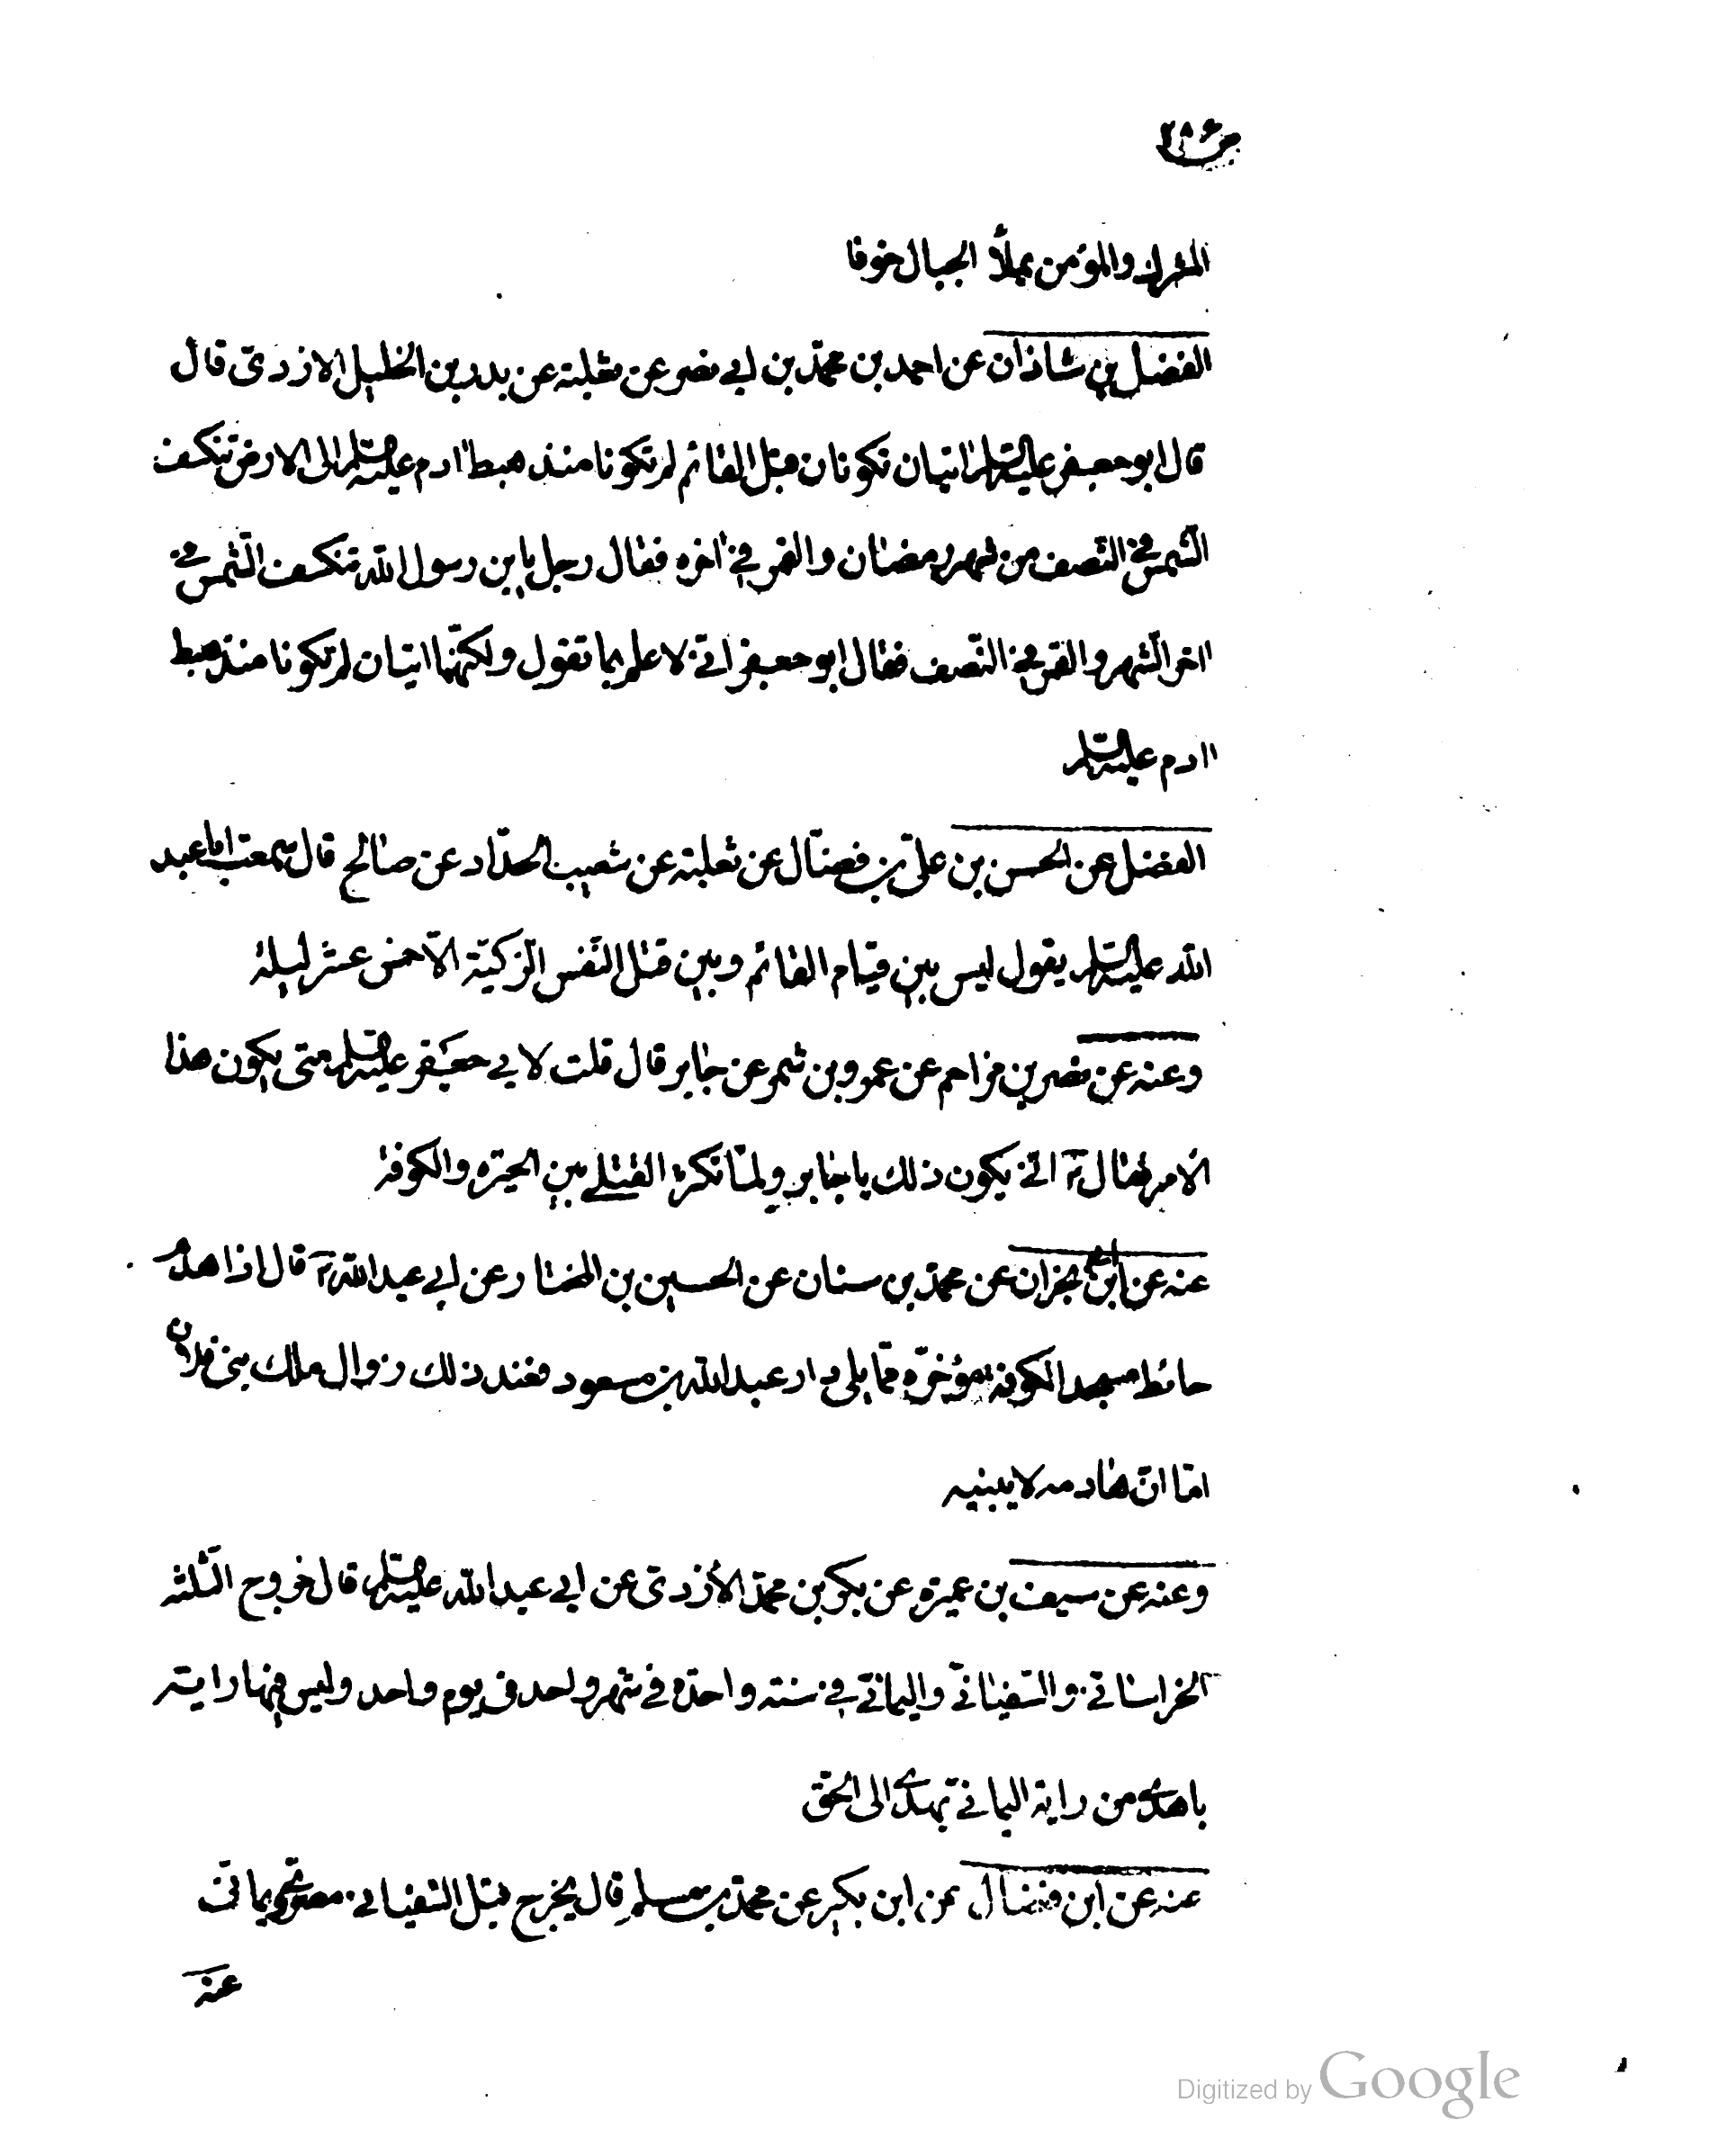 المشرك والمؤمن يملأ الجبال خوفا
الفضل بن شاذان عن احمد بن محمّد بن ابي نصر عن ثعلبة عن بدر بن الخليل الازدىّ قال
قال ابو جعفر عليه السلم اٰيتان تكونان قبل القائم لم تكونا منذ هبط اٰدم عليه السلم الى الارض تنكسف
الشّمس في النّصف من شهر رمضان والقمر في اٰخره فقال رجل يا بن رسول الله تنكسف الشّمس في
اٰخر الشّهر والقمر في النّصف فقال ابو جعفر انّي لا علم بما تقول ولكنّها ايتان لم تكونا منذ هبط
اٰدم عليه السلم
الفضل عن الحسن بن علىّ بن فضّال عن ثعلبة عن شعيب الحدّاد عن صالح قال سمعت ابا عبد
الله عليه السلم يقول ليس بين قيام القائم وبين قتل النّفس الزّكيّة الّا خمس عشر ليلة
وعنه عن نصر بن مزاحم عن عمرو بن شمر عن جابر قال قلت لابي جعفر عليه السلم متى يكون هذا
الأمر فقال ع انّى يكون ذلك يا جابر ولمّا تكثر القتلى بين الحيرة والكوفة
عنه عن ابن ابي نجران عن محمّد بن سنان عن الحسين بن المختار عن ابي عبد الله ع قال اذا هدم
حائط مسجد الكوفة مؤخّره ممّا يلي دار عبد الله بن مسعود فعند ذلك زوال ملك بني فلان
امّا انّ هادمه لا يبنيه
وعنه عن سيف بن عميرة عن بكر بن محمّد الأزدىّ عن ابي عبد الله عليه السلم قال خروج الثّلثة
الخراسانىّ والسّفيانىّ واليمانىّ في سنة واحدة في شهر واحد في يوم واحد وليس فيها راية
باهدى من راية اليمانىّ تهدى الى الحقّ
عنه عن ابن فضّال عن ابن بكير عن محمّد بن مسلم قال يخرج قبل السّفيانىّ مصرىّ ويمانىّ
عنه
Digitized by Google